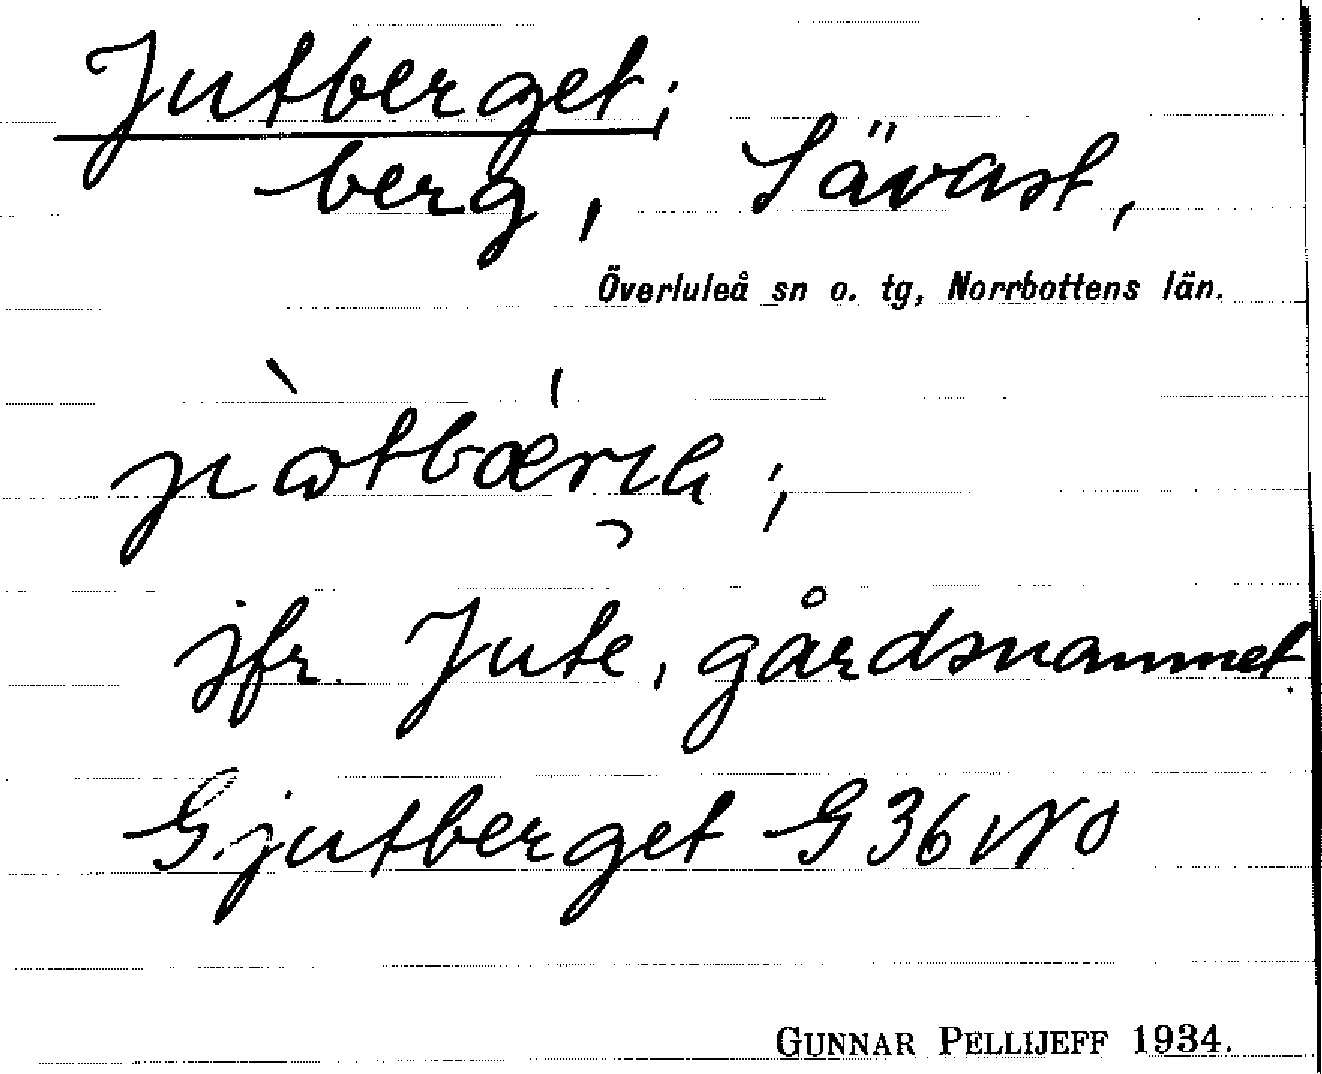 Jutberget;
berg, Sävast,
Överluleå sn o. tg, Norrbottens län.
jfr. Jute, gårdsnamnet
Gjutberget G 36 NO
GUNNAR PELLIJEFF 1934.